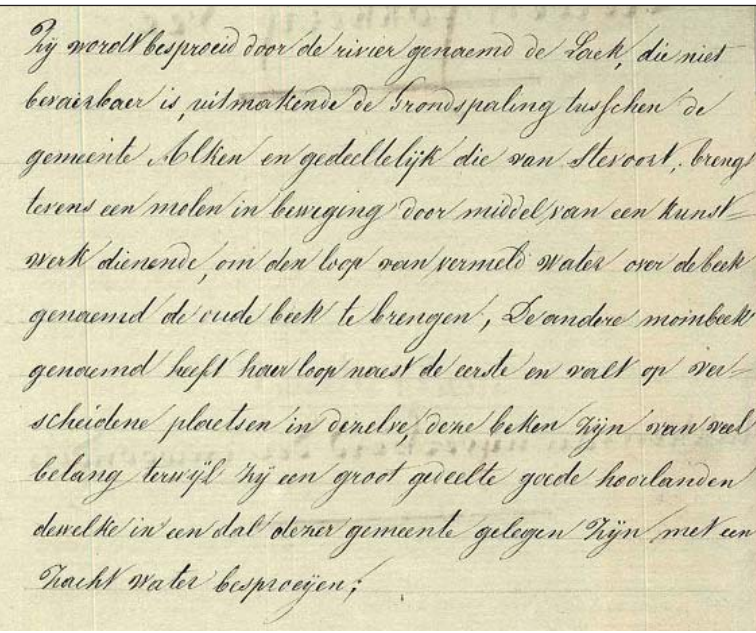 Zy wordt besproeid door de rivier genaemd de Laek, die niet
bevaerbaer is, uitmakende de Grondspaling tusschen de
gemeente Alken en gedeeltelijk die van Stevoort, breng
tevens een molen in beweging door middel van een kunst=
werk dienende, om den loop van vermeld water over de beek
genaemd de oude beek te brengen, De andere mombeek
genaemd heeft haer loop naest de eerste en valt op ver=
scheidene plaetsen in dezelve, deze beken zyn van veel
belang terwyl zy een groot gedeelte goede hooilanden
dewelke in een dal dezer gemeente gelegen zyn met een
zacht water besproeyen;